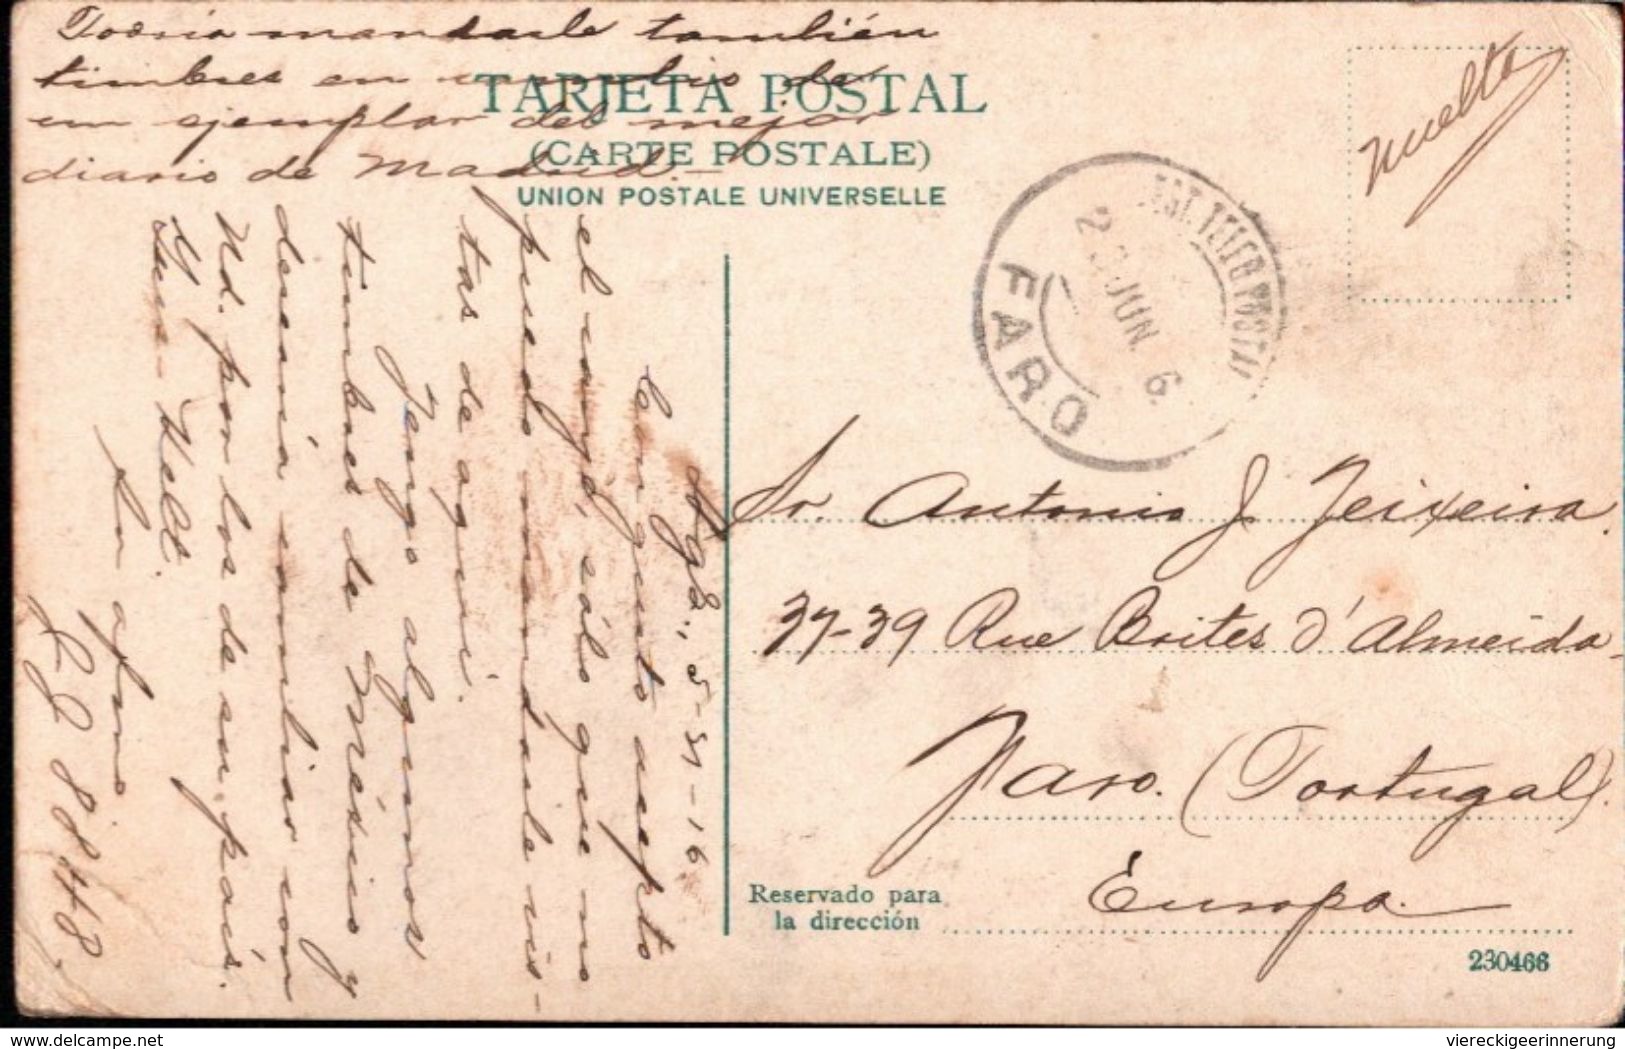 Podría mandarle también
timbres en cambio de
un ejemplar del mejor
diario de Madrid.-
TARJETA POSTAL
(CARTE POSTALE)
UNION POSTALE UNIVERSELLE
Vuelta
EST. TELEGRAFO POSTAL
2 JUN. 6
FARO
5-31-16
Con gusto acepto
el canje, sólo que no
puedo mandarle vis-
tas de aquí.
Tengo algunos
timbres de México y
desearía cambiar con
Ud. por los de su país.
Su afmo
LL 8848
Sr. Antonio J. Teixeira.
37-39 Rue Brites d'Almeida
Faro. (Portugal).
Europa.
Reservado para
la dirección
230466
www.delcampe.net
viereckigeerinnerung